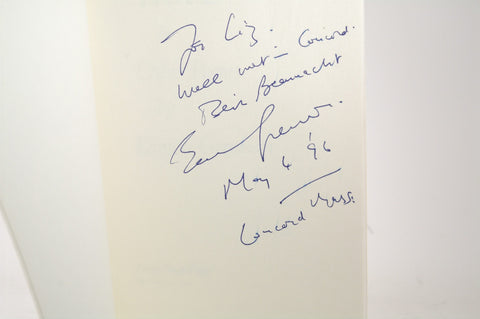 For Liz.
Well met – Concord.
Beir Beannacht
May 6 '96
Concord Mass.